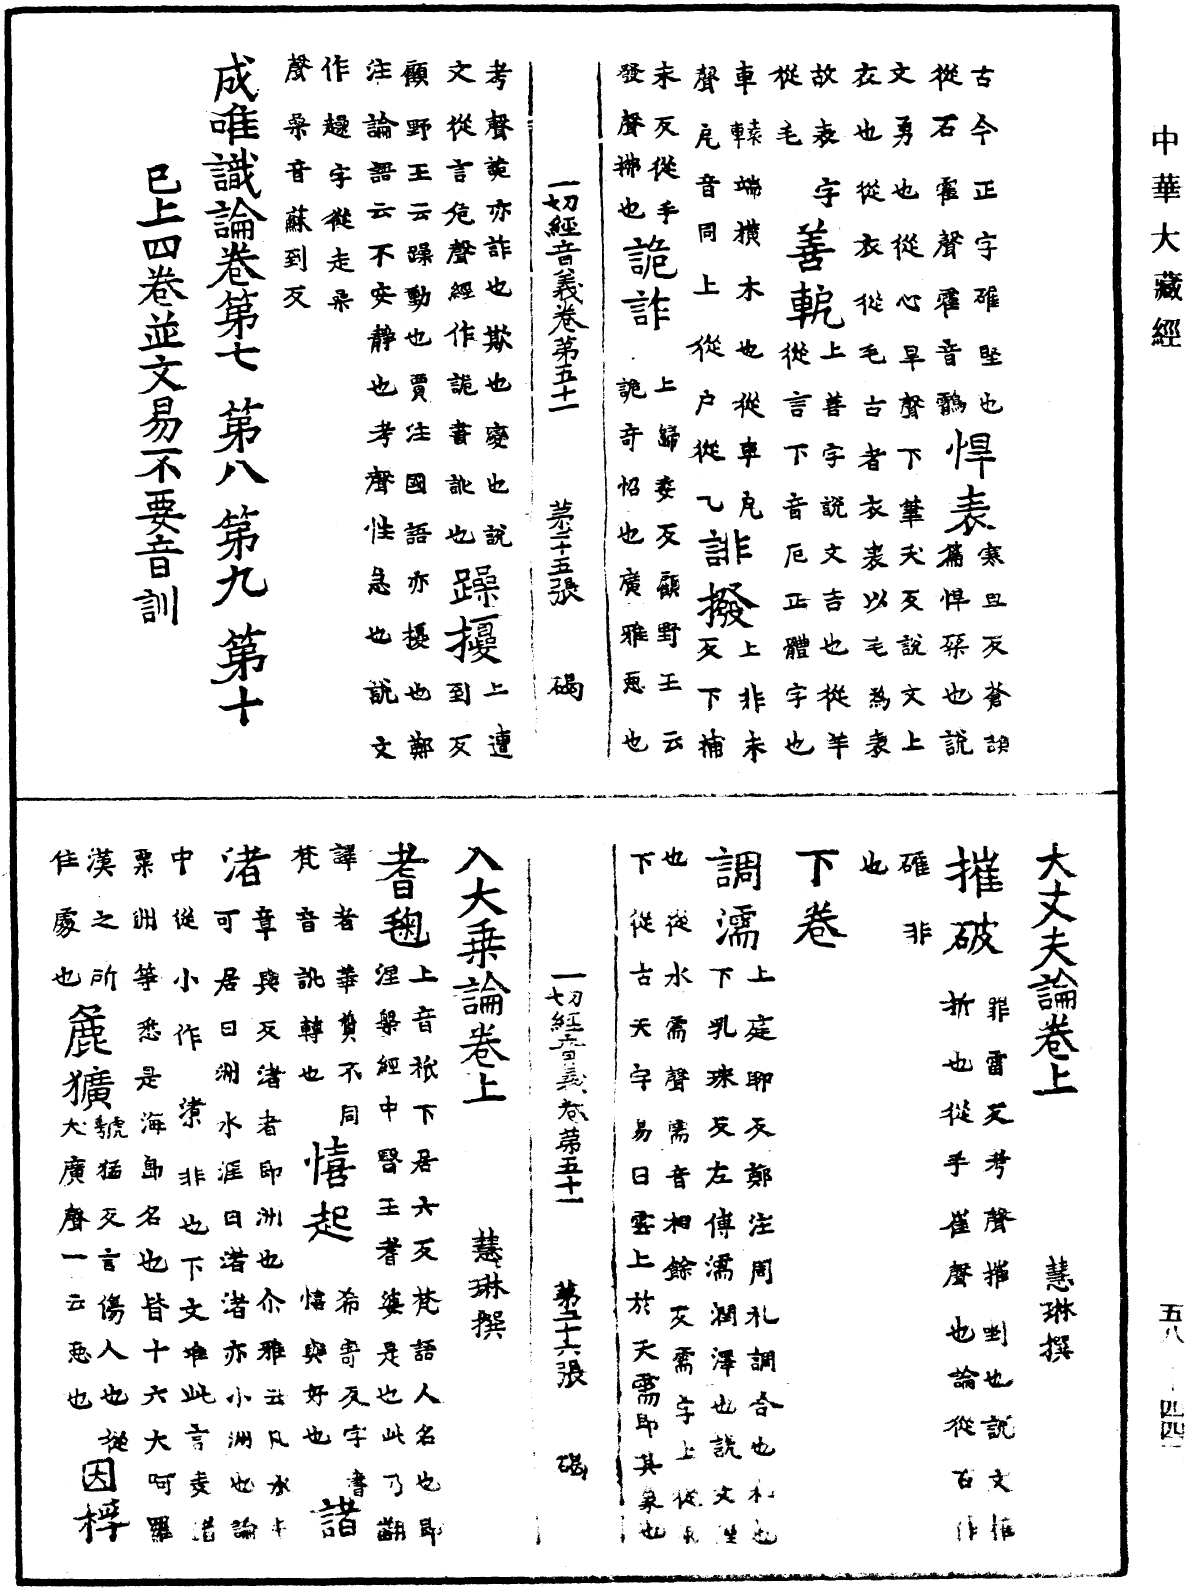 中華大藏經
古今正字確堅也
從石隺聲隺音鶴悍表寒旦反蒼頡篇悍桀也說
文勇也從心旱聲下華夭反說文上
衣也從衣從毛古者衣裘以毛為表
故表字從毛善軶上善字說文吉也從羊從言下音厄正體字也
車轅端橫木也從車戹
聲戹音同上從戶從乙誹撥上非未反下補
末反從手
發聲撥也詭詐上歸委反顧野王云詭奇恠也廣雅惡也
一切經音義卷第五十一 第二十五張 碣
考聲詭亦詐也欺也變也說
文從言危聲經作詭書訛也躁擾上遭到反
顧野王云躁動也賈注國語亦擾也鄭
注論語云不安靜也考聲性急也說文
作趮字從走喿
聲喿音蘇到反
成唯識論卷第七 第八 第九 第十
已上四卷並文易不要音訓
大丈夫論卷上 慧琳撰
摧破罪雷反考聲摧剉也說文推折也從手崔聲也論從石作
磪非也
下卷
調濡上庭聊反鄭注周礼調合也和也下乳珠反左傳濡潤澤也說文
也從水需聲需音相餘反需字上從雨
下從古天字易曰雲上於天需即其象也
一切經音義卷第五十一 第二十六張 碣
入大乘論卷上 慧琳撰
耆毱上音祇下居六反梵語人名也即涅槃經中醫王耆婆是也此乃翻
譯者華質不同
梵音訛轉也憘起希寄反字書憘與好也諸
渚章與反渚者即洲也尒雅云凡水中可居曰洲水涯曰渚渚亦小洲也論
中從小作㵂非也下文准此言麦渚
粟洲等悉是海島名也皆十六大阿羅
漢之所
住處也麁獷虢猛反言傷人也從犬廣聲一云惡也因桴
五八—四四